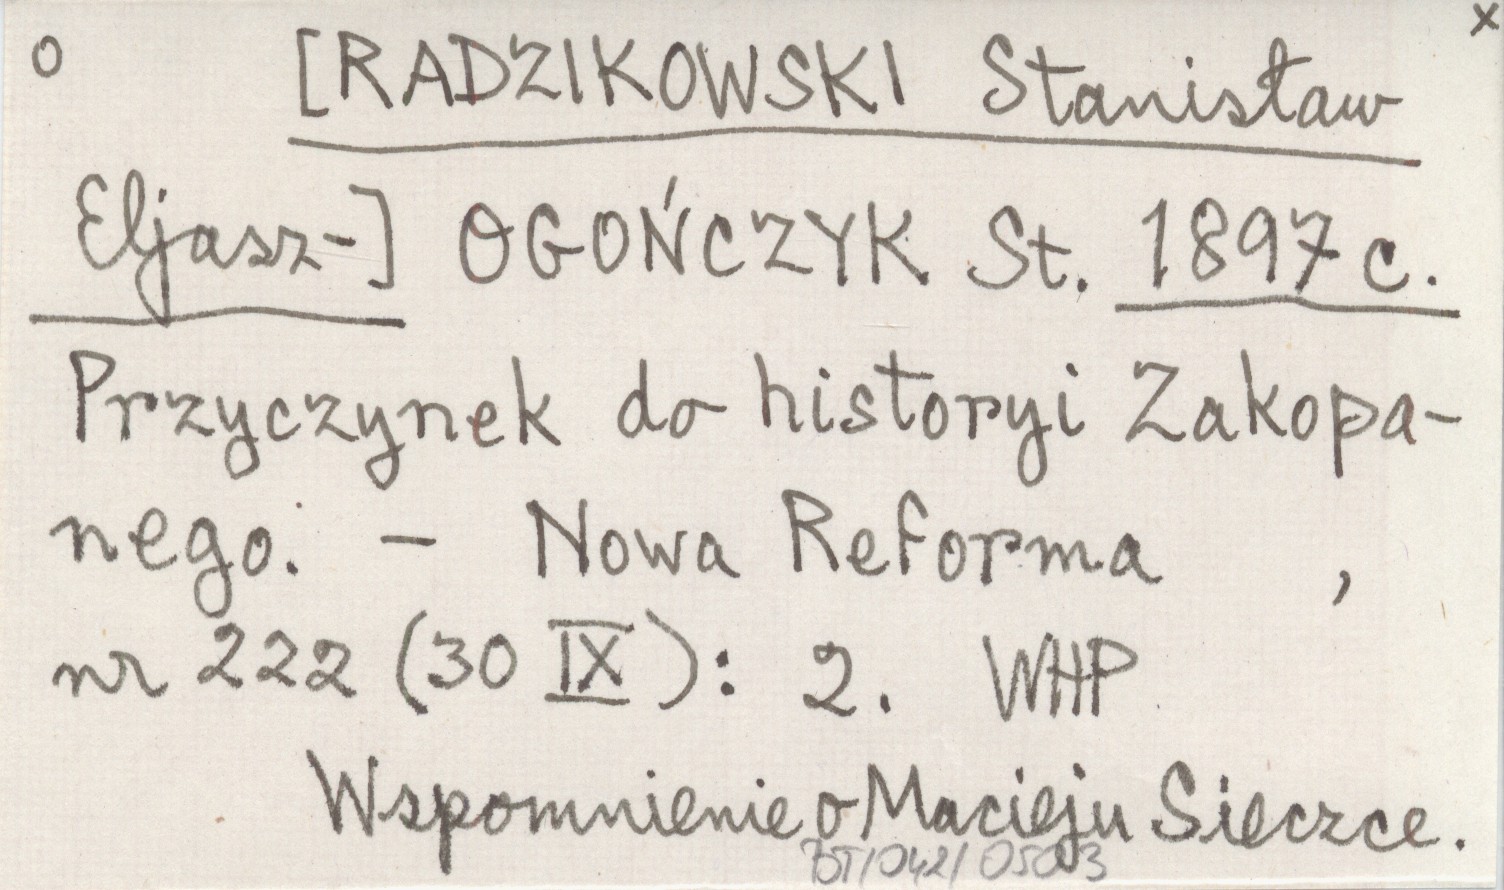 o [RADZIKOWSKI Stanisław x
Eljasz-] OGOŃCZYK St. 1897 c.
Przyczynek do historyi Zakopa-
nego. - Nowa Reforma ,
nr 222 (30 IX): 2. WHP
Wspomnienie o Macieju Sieczce.
BT/042/05003